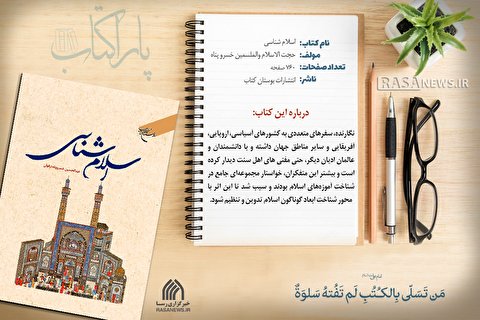 پاراکتاب
نام کتاب: اسلام شناسی
مولف: حجت الاسلام والمسلمین خسروپناه
تعداد صفحات: ۷۶۰ صفحه
ناشر: انتشارات بوستان کتاب
درباره این کتاب:
نگارنده، سفرهای متعددی به کشورهای آسیایی، اروپایی،
آفریقایی و سایر مناطق جهان داشته و با دانشمندان و
عالمان ادیان دیگر، حتی مفتی های اهل سنت دیدار کرده
است و بیشتر این متفکران، خواستار مجموعه‌ای جامع در
شناخت آموزه‌های اسلام بودند و سبب شد تا این اثر با
محور شناخت ابعاد گوناگون اسلام تدوین و تنظیم شود.
RASANEWS.IR
اسلام‌شناسی
خبرگزاری رسا
RASANEWS.IR
مَن تَسَلّى بِالكُتُبِ لَم تَفُتهُ سَلوَةٌ